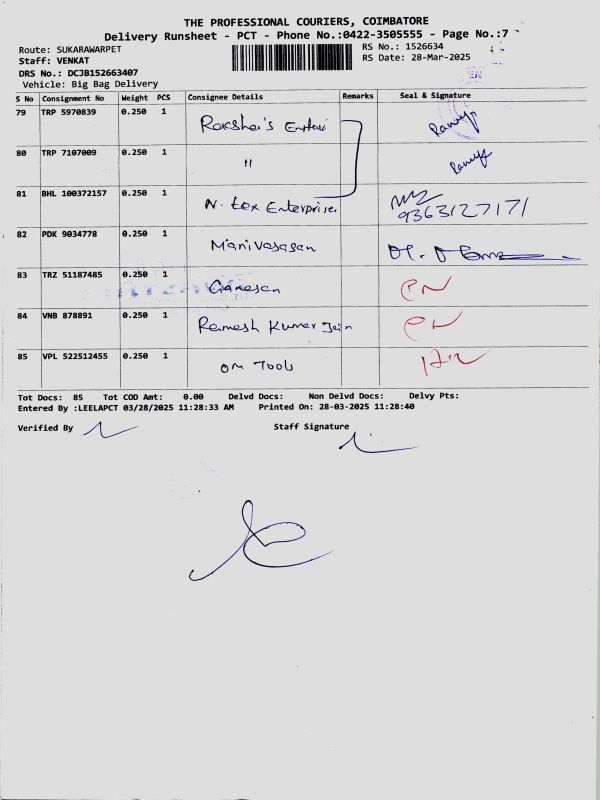 THE PROFESSIONAL COURIERS, COIMBATORE
Delivery Runsheet - PCT - Phone No.:0422-3505555 - Page No.:7
Route: SUKARAWARPET
RS No.: 1526634
Staff: VENKAT
RS Date: 28-Mar-2025
DRS No.: DCJB152663407
Vehicle: Big Bag Delivery
S No Consignment No Weight PCS Consignee Details Remarks Seal & Signature
79 TRP 5970839 0.250 1
80 TRP 7107009 0.250 1 "
81 BHL 100372157 0.250 1 N. tex Enterprises 9363127171
82 PDK 9034778 0.250 1 Manivasasan
83 TRZ 51187485 0.250 1 Ganesan
84 VNB 878891 0.250 1 Ramesh Kumar Jain
85 VPL 522512455 0.250 1 OM Tools
Tot Docs: 85 Tot COD Amt: 0.00 Delvd Docs: Non Delvd Docs: Delvy Pts:
Entered By :LEELAPCT 03/28/2025 11:28:33 AM Printed On: 28-03-2025 11:28:40
Verified By
Staff Signature